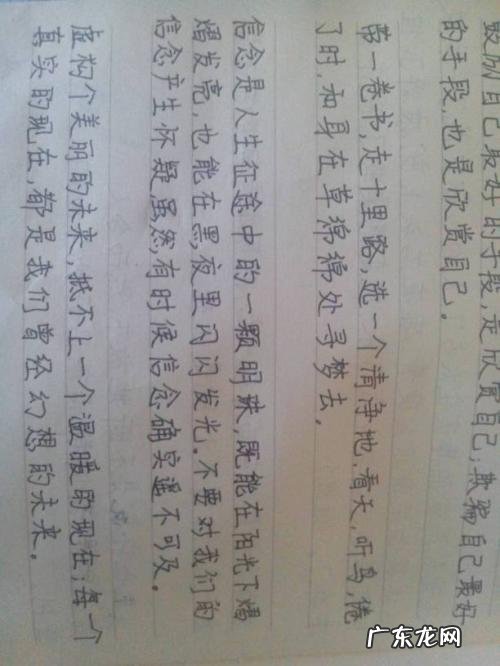 鼓励自己最好的手段,是欣赏自己;欺骗自己最好
的手段,也是欣赏自己。
带一卷书,走十里路,选一个清净地,看天,听鸟,倦
了时,和身在草绵绵处寻梦去。
信念是人生征途中的一颗明珠,既能在阳光下熠
熠发亮,也能在黑夜里闪闪发光。不要对我们的
信念产生怀疑虽然有时候信念确实遥不可及。
虚构个美丽的未来,抵不上一个温暖的现在;每一个
真实的现在,都是我们曾经幻想的未来。
广东龙网